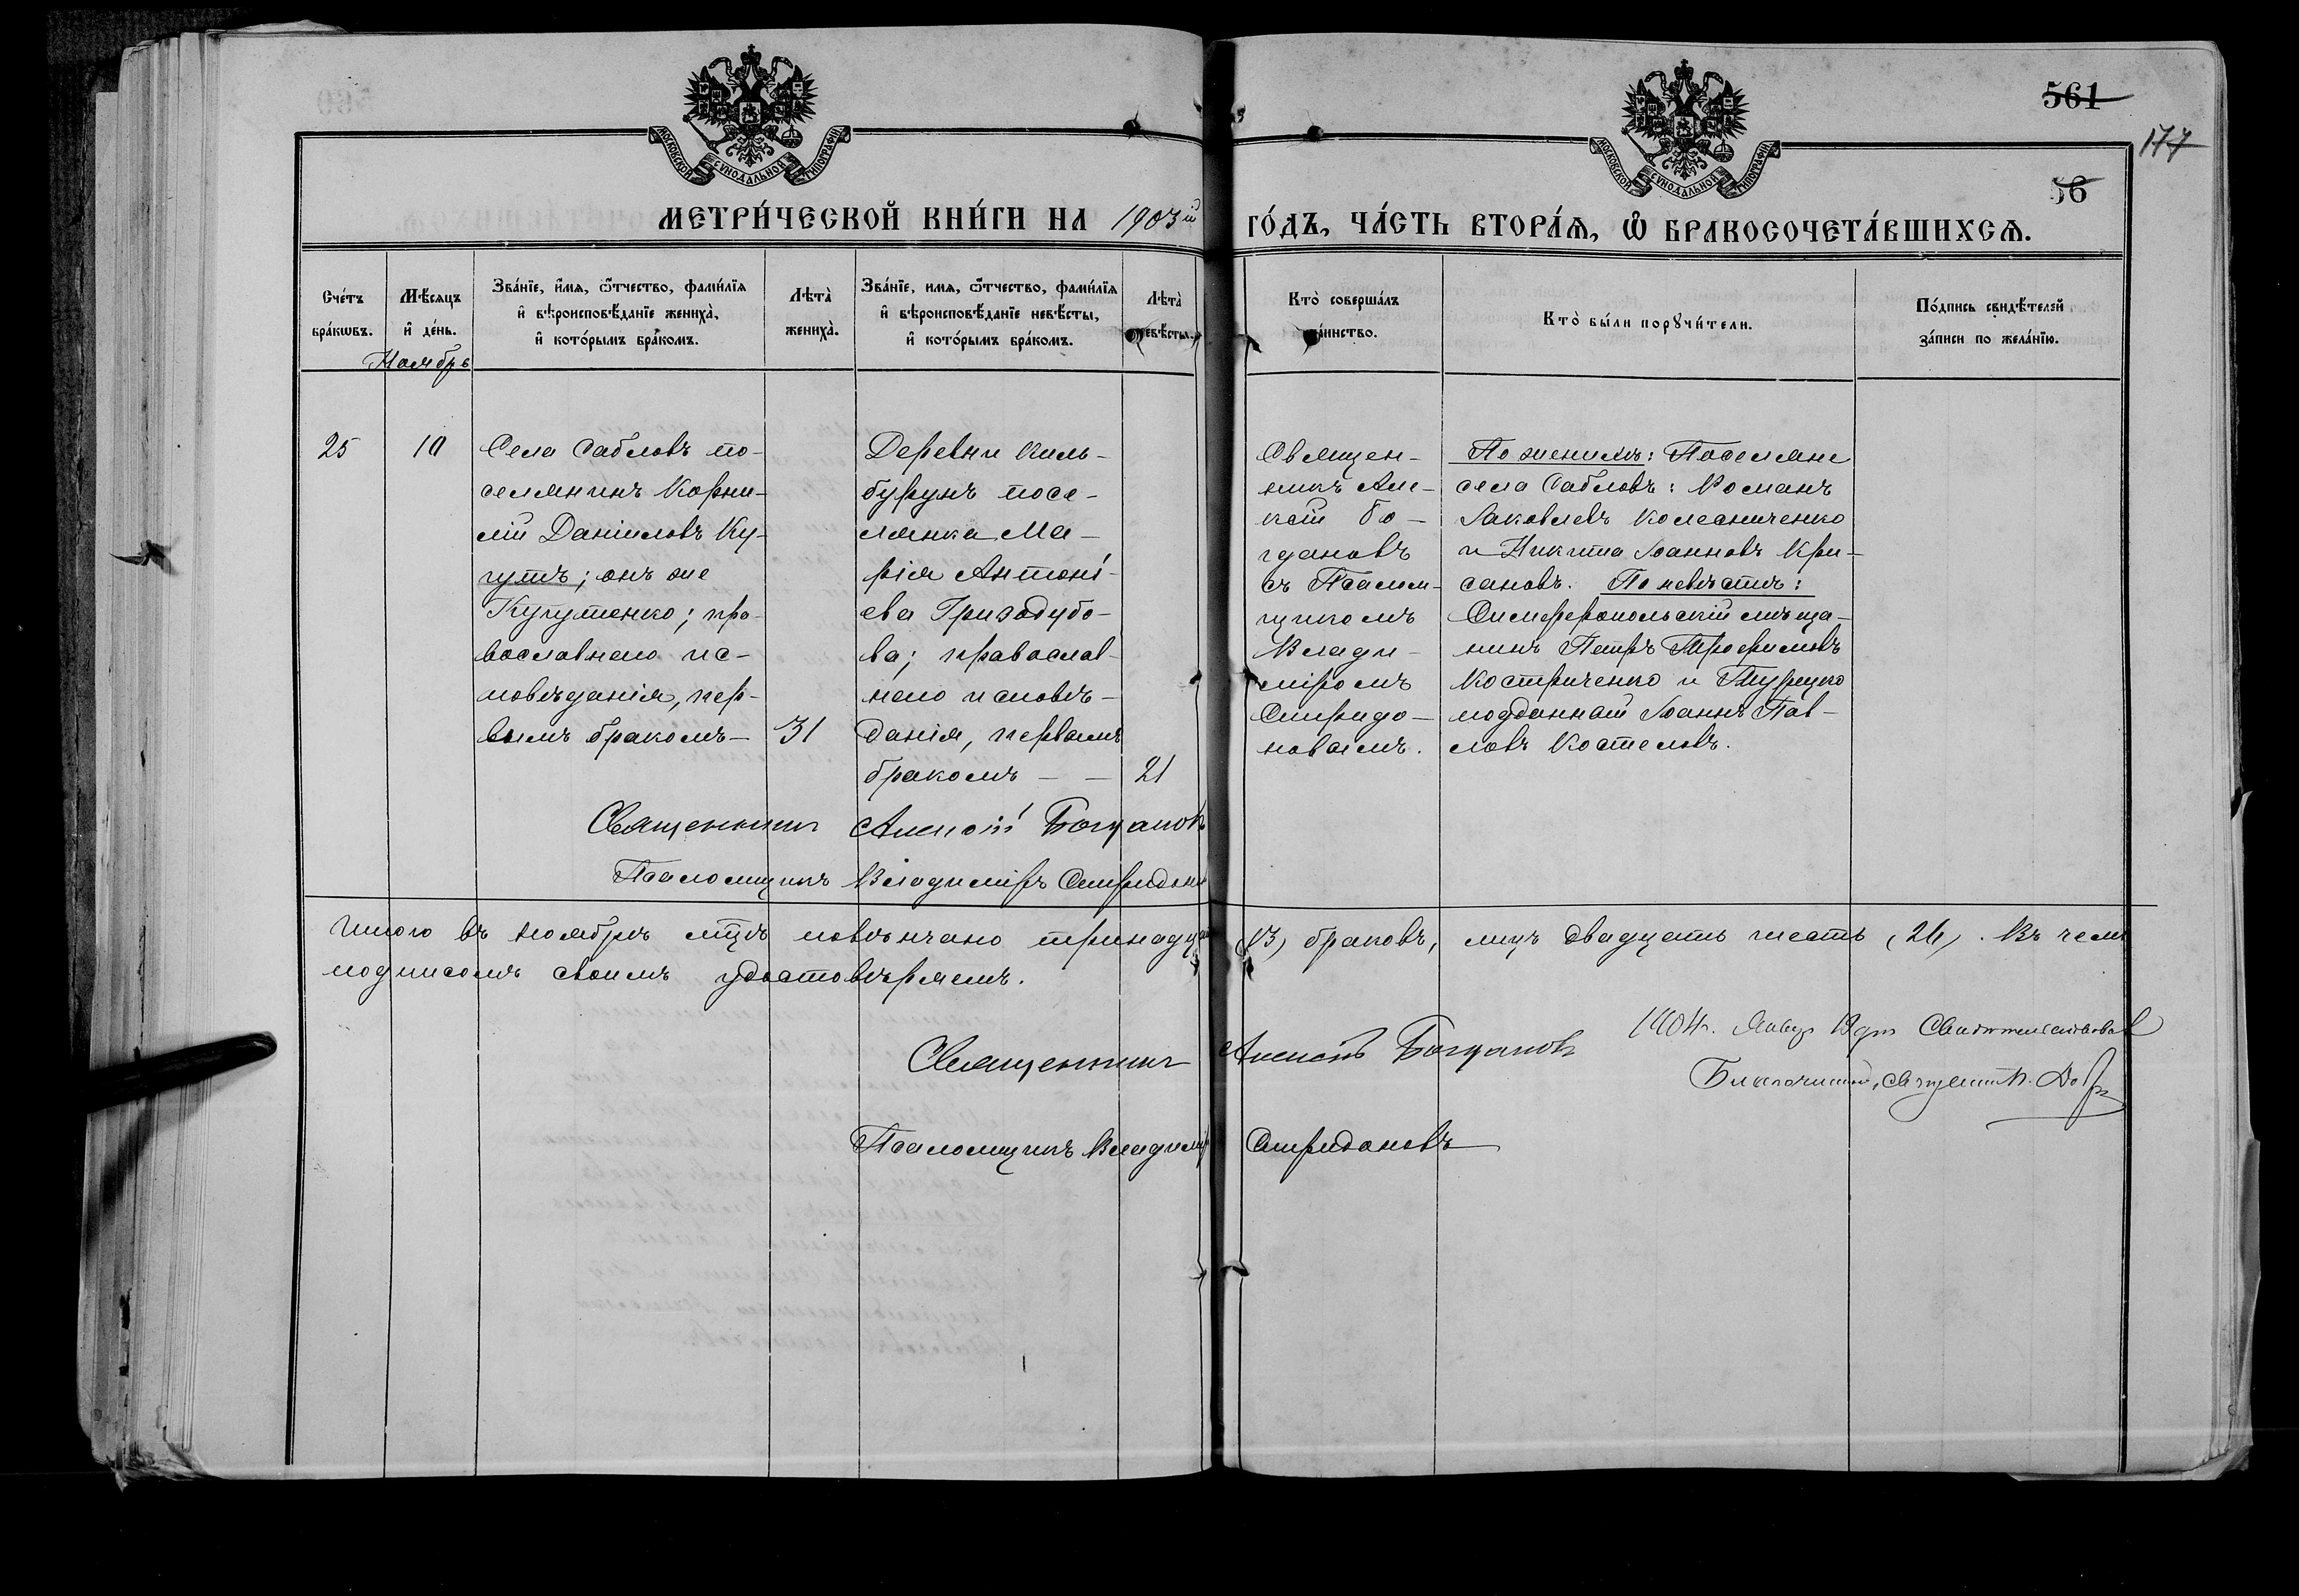 561
177
56
МОСКОВСКОЙ СУНОДАЛЬНОЙ ТИПОГРАФІИ
МОСКОВСКОЙ СУНОДАЛЬНОЙ ТИПОГРАФІИ
МЕТРИ́ЧЕСКОЙ КНИ́ГИ НА 1903й ГО́ДЪ, ЧА́СТЬ ВТОРА́Ѧ, Ѡ҆ БРАКОСОЧЕТА́ВШИХСѦ.
Сче́тъ
бра́кѡвъ.
Мѣ́сяцъ
и҆ де́нь.
Ноябрь
Зва́нїе, и҆́мя, ѻ҆́тчество, фами́лїя
и҆ вѣроисповѣ́данїе жениха̀,
и҆ кото́рымъ бра́комъ.
Лѣта̀
жениха̀.
Зва́нїе, имя, ѻ҆́тчество, фами́лїя
и҆ вѣроисповѣ́данїе невѣ́сты,
и҆ кото́рымъ бра́комъ.
Лѣта̀
невѣ́сты.
Кто̀ соверша́лъ
та́инство.
Кто̀ бы́ли порꙋчи́тели.
По́дпись свидѣ́телей
за́писи по жела́нїю.
25
10
Села Сабловъ по-
селянинъ Корни-
лій Даніиловъ Ку-
гутъ; онъ же
Кугутенко; пра-
вославнаго ис-
повѣданія, пер-
вымъ бракомъ —
31
Деревни Киль-
бурунъ посе-
лянка Ма-
рія Антоні-
ева Гризодубо-
ва; православ-
наго исповѣ-
данія, первымъ
бракомъ — —
21
Священ-
никъ Але-
ксій Бо-
гдановъ
съ Псалом-
щикомъ
Влади-
міромъ
Спиридо-
новымъ.
По женихѣ: Поселяне
села Сабловъ: Романъ
Іаковлевъ Колесниченко
и Никита Іоанновъ Кри-
сановъ. По невѣстѣ:
Симферопольскій мѣща-
нинъ Петръ Трофимовъ
Костриченко и Турецко
подданный Іоаннъ Пав-
ловъ Костеловъ.
Священникъ Алексій Богдановъ
Псаломщикъ Владиміръ Спиридоно
Итого въ ноябрѣ мцѣ повѣнчано тринадцать (13) браковъ, лицъ двадцать шесть (26). Въ чемъ
подписомъ своимъ удостовѣряемъ.
Священникъ Алексій Богдановъ
1904 г. Янвр 19 дня Свидѣтельствовалъ
Благочинный, Священ.
Псаломщикъ Владиміръ Спиридоновъ